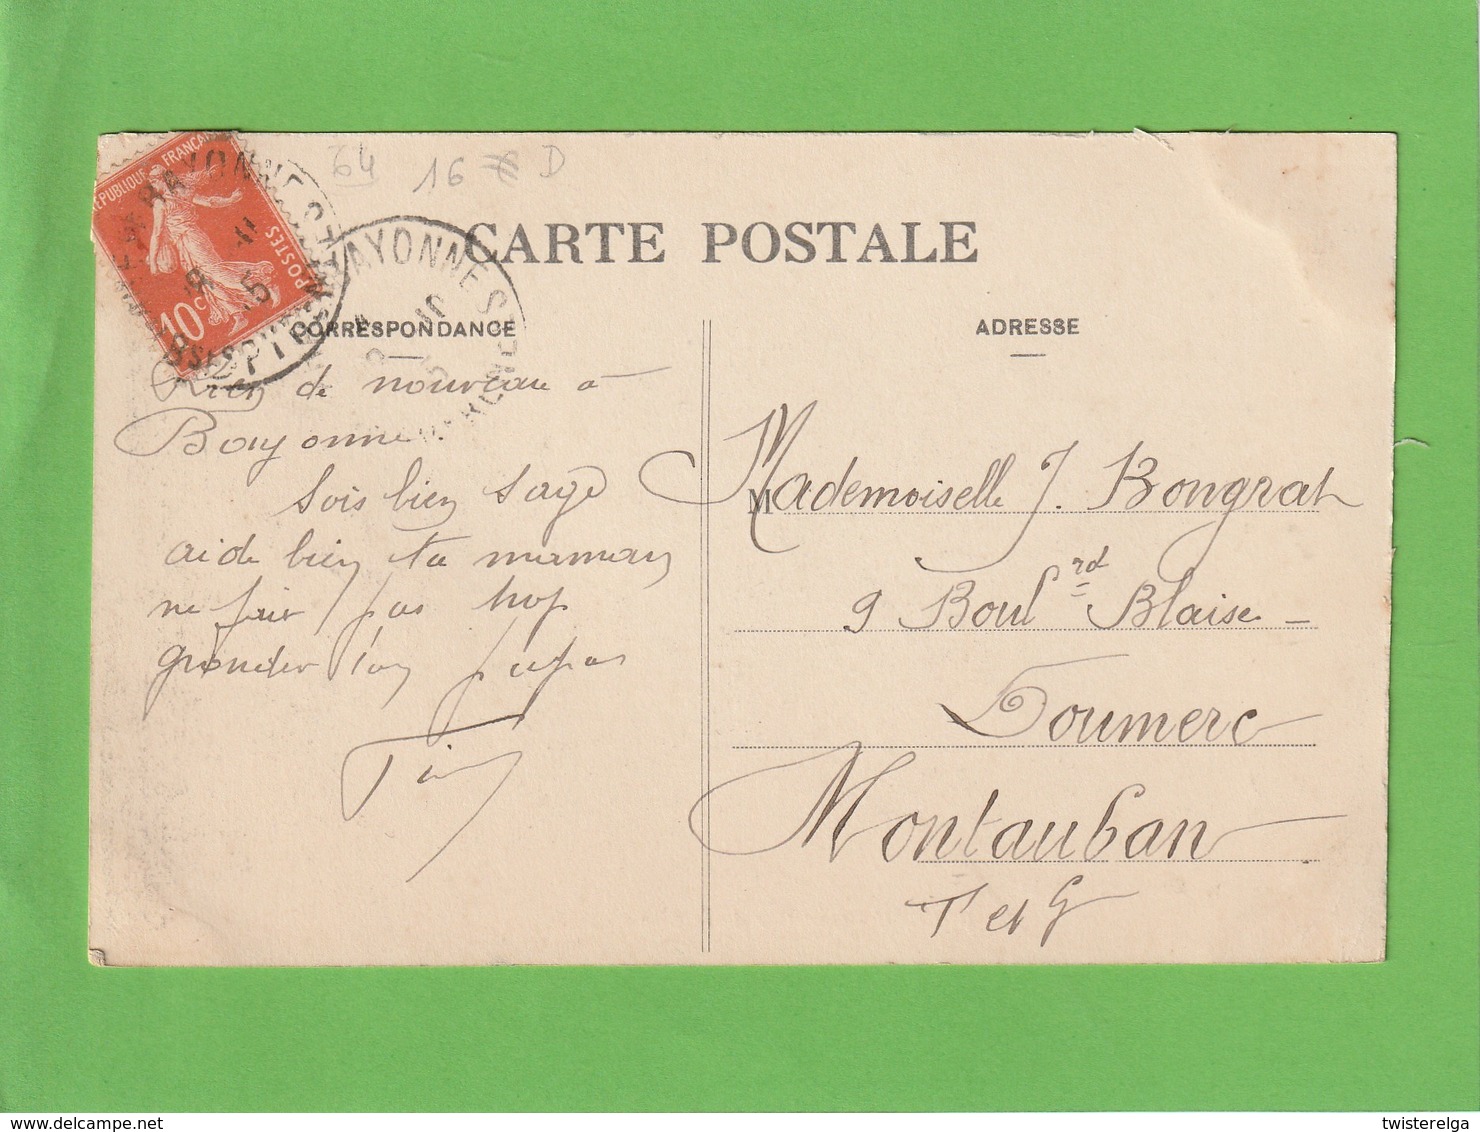 64 16 D
RÉPUBLIQUE FRANÇAISE
POSTES
10c
BAYONNE
BAYONNE
CARTE POSTALE
CORRESPONDANCE
Rien de nouveau à
Bayonne.
Sois bien sage
aide bien ta maman
ne fais pas trop
gronder ton papa
ADRESSE
Mademoiselle J. Bongrat
9 Boulrd Blaise-
Doumerc
Montauban
T et G
twisterelga